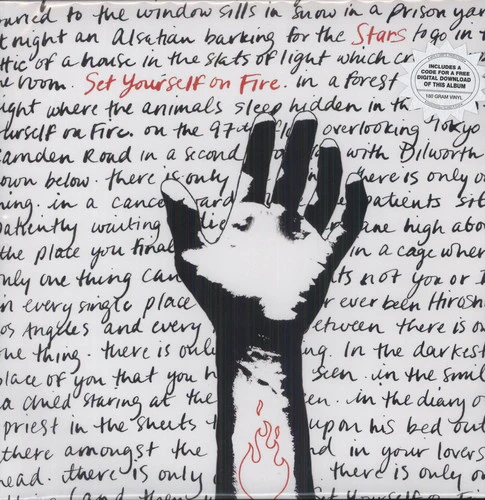 buried to the window sills in snow in a prison yard
at night an Alsatian barking for the Stars to go in t
ttic of a house in the slats of light which cr
he room. Set Yourself on Fire. in a forest
ight where the animals sleep hidden in th
urself on Fire. on the 97th flo overlooking Tokyo
Camden Road in a second with Dilworth
own below. there is only there is only o
hing. in a cancer ward patients sit
patiently waiting die ane high abo
the place you final in a cage wher
only one thing can ts not you or I
in every single place r ever been Hirosh
Los Angeles and every etween there is o
one thing. there is only ng. In the darkest
place of you that you h seen. in the smil
a child staring at the en. in the diary o
priest in the sheets t upon his bed out
there amongst the nd in your lovers
head. there is only there is only o
INCLUDES A
CODE FOR A FREE
DIGITAL DOWNLOAD
OF THIS ALBUM
180 GRAM VINYL